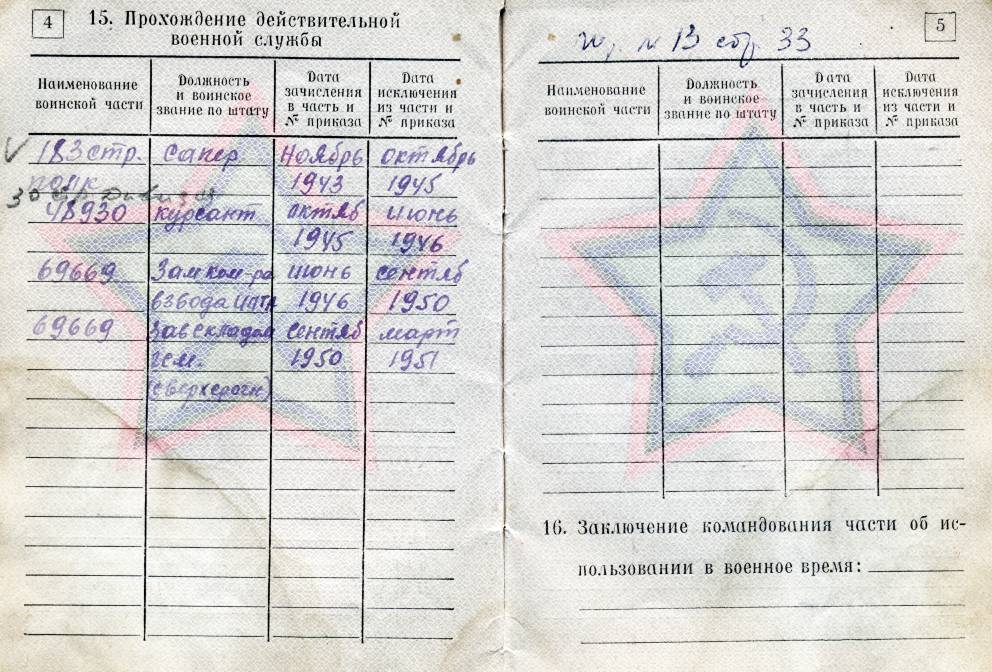 4
15. Прохождение действительной
военной службы
Наименование воинской части
Должность и воинское звание по штату
Дата зачисления в часть и № приказа
Дата исключения из части и № приказа
183 стр. сапер Ноябрь октябрь
полк 1943 1945
30 стр дивизия
48930 курсант октяб июнь
1945 1946
69669 Замком-ра июнь сентяб
взвода 1946 1950
69669 Зав складом сентяб март
1950 1951
(сверхсрочн)
№ 13 стр. 33
5
Наименование воинской части
Должность и воинское звание по штату
Дата зачисления в часть и № приказа
Дата исключения из части и № приказа
16. Заключение командования части об ис-
пользовании в военное время: